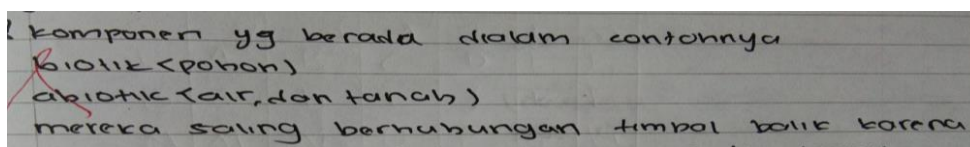 komponen yg berada dialam contohnya
biotik (pohon)
abiotik (air, dan tanah)
mereka saling berhubungan timbal balik karena